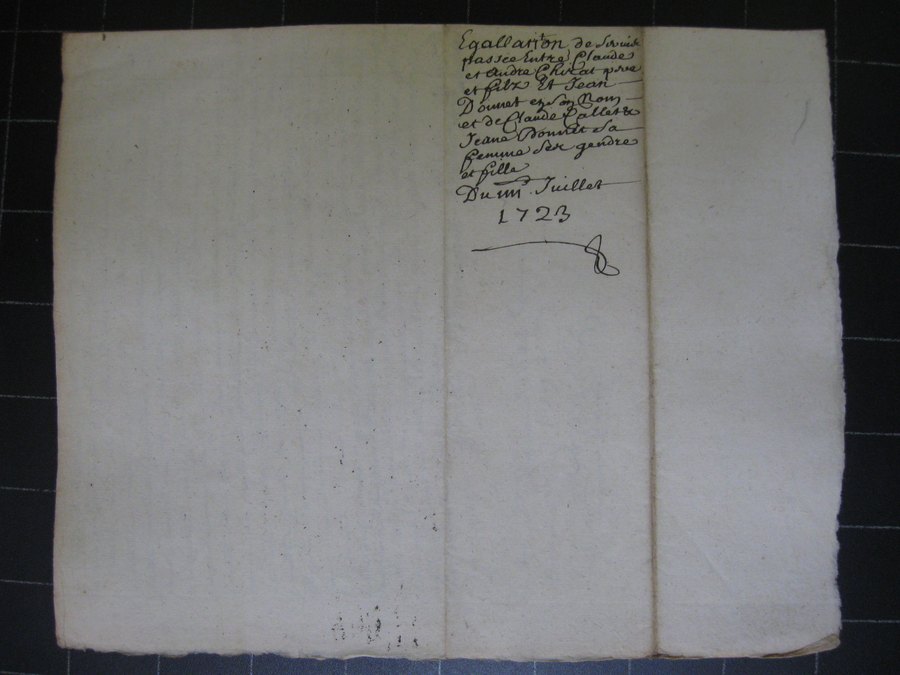 Egallation de Servis
passée Entre Claude
et andre Chirat pere
et filz Et Jean
Donnet en son Nom
et de Claude Pallet &
Jeane Donnet sa
femme ses gendre
et fille
Du iiii Juillet
1723